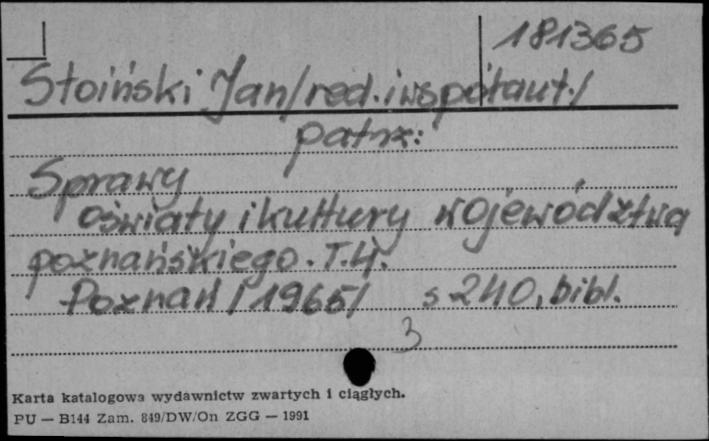 181365
Stoiński Jan/red. i współaut./
patrz:
Sprawy
oświaty i kultury województwa
poznańskiego. T.4.
Poznań /1965/ s 240, bibl.
3
Karta katalogowa wydawnictw zwartych i ciągłych.
PU — B144 Zam. 849/DW/On ZGG — 1991